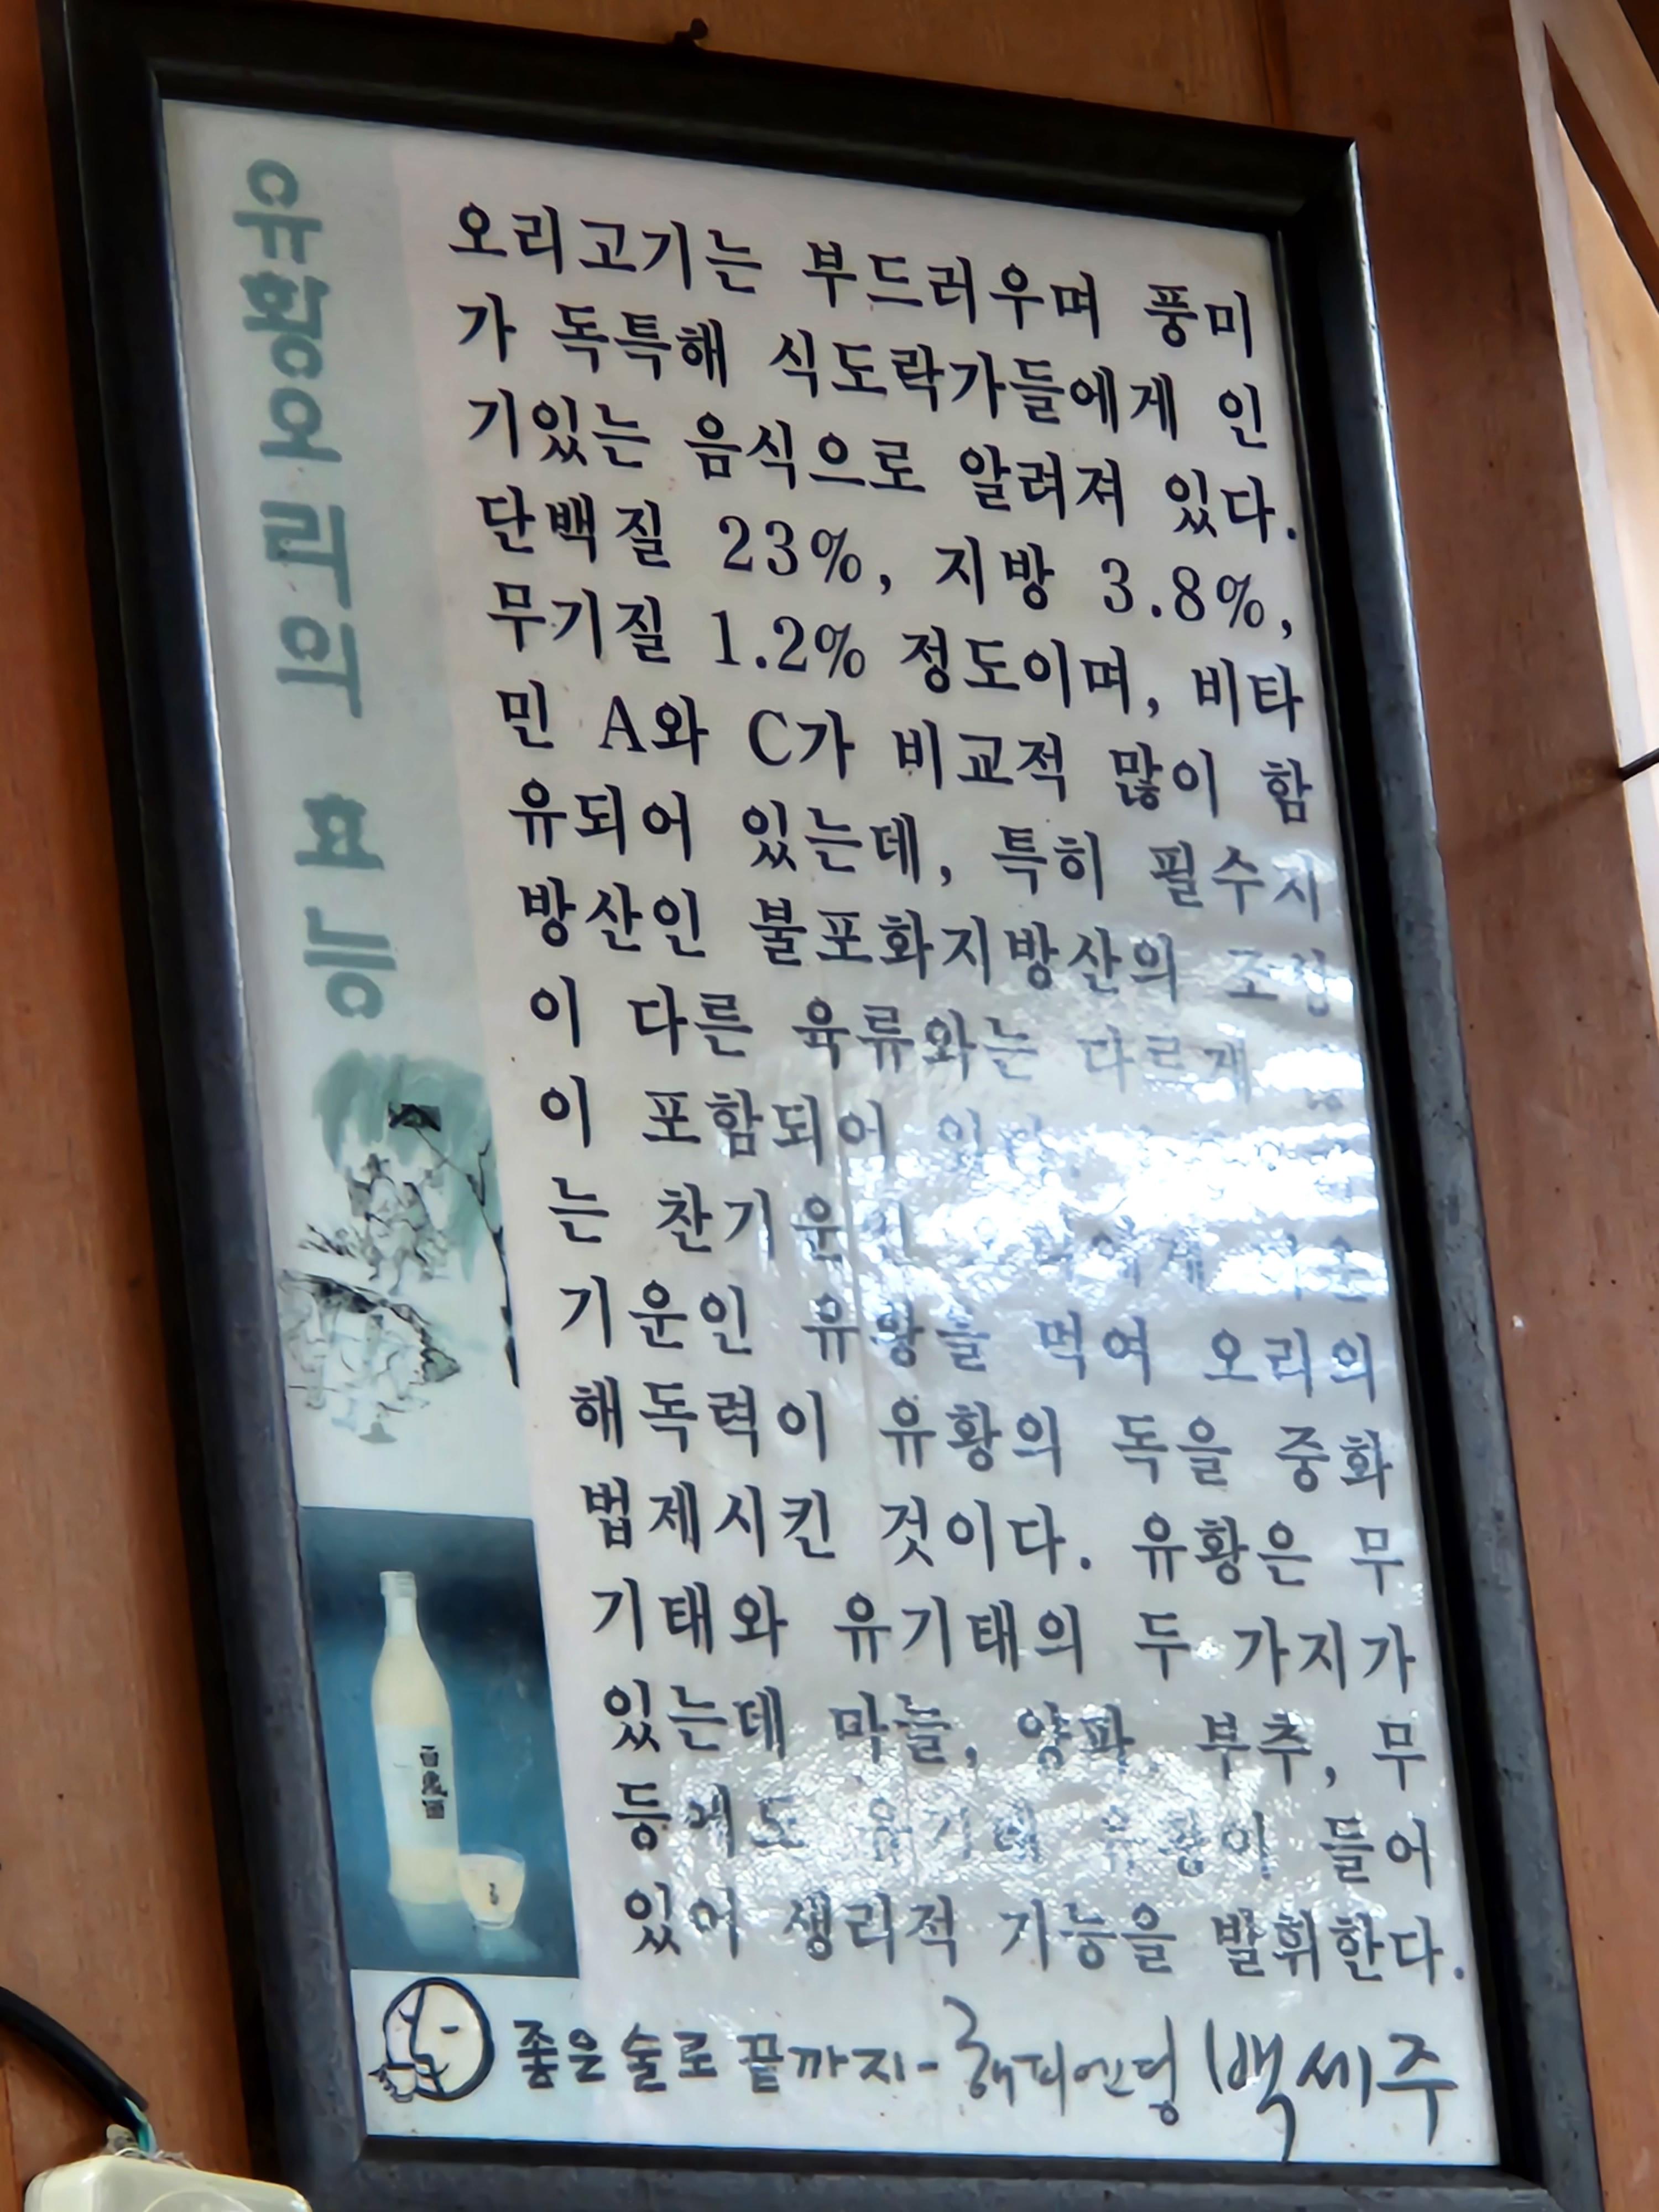 유황오리의 효능
오리고기는 부드러우며 풍미
가 독특해 식도락가들에게 인
기있는 음식으로 알려져 있다.
단백질 23%, 지방 3.8%,
무기질 1.2% 정도이며, 비타
민 A와 C가 비교적 많이 함
유되어 있는데, 특히 필수지
방산인 불포화지방산의 조성
이 다른 육류와는 다르게
이 포함되어
는 찬기운
기운인 유황을 먹여 오리의
해독력이 유황의 독을 중화
법제시킨 것이다. 유황은 무
기태와 유기태의 두 가지가
있는데 마늘, 양파, 부추, 무
등에도 유기태 유황이 들어
있어 생리적 기능을 발휘한다.
百歲酒
좋은 술로 끝까지- 해피엔딩 백세주